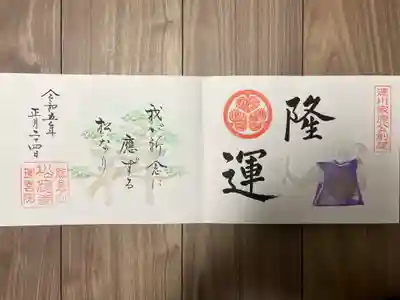 徳川家康公創建
隆運
我が祈念に
應ずる
松なり
令和五年
正月二十四日
松應寺